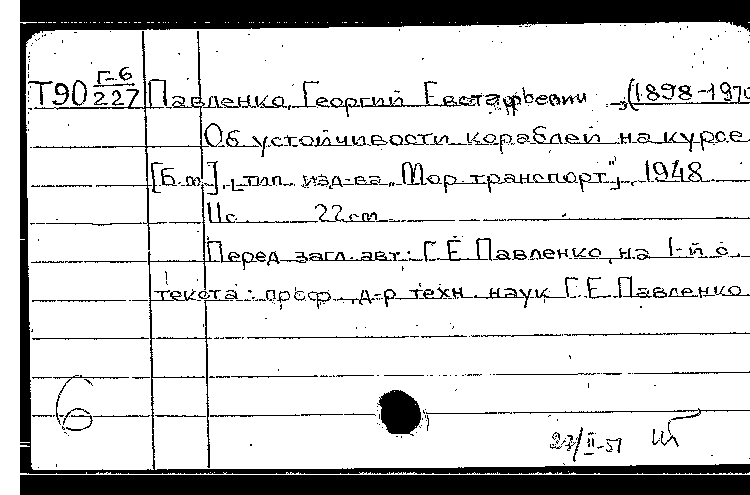 Т90 Г-6/227 Павленко, Георгий Евстафьевич, (1898-1970
Об устойчивости кораблей на курсе.
[Б.м.], [тип. изд-ва „Мор. транспорт"], 1948
11с. 22см.
Перед загл. авт.: Г.Е. Павленко, на 1-й с.
текста: проф., д-р техн. наук Г.Е. Павленко
6
23/II-51